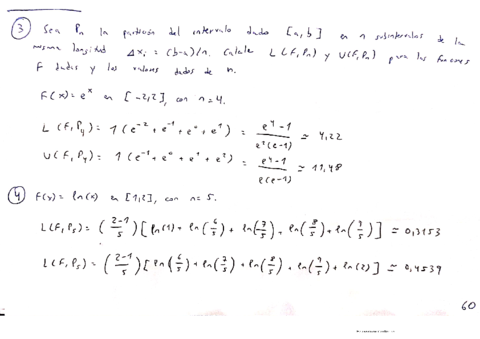 ③ Sea Pn la partición del intervalo dado [a,b] en n subintervalos de la
misma longitud Δxi = (b-a)/n. Calcule L(F,Pn) y U(F,Pn) para las funciones
F dadas y los valores dados de n.
F(x)=e^x en [-2,2], con n=4.
L(F,P4) = 1(e^-2 + e^-1 + e^0 + e^1) = (e^4-1)/(e^2(e-1)) ≈ 4,22
U(F,P4) = 1(e^-1 + e^0 + e^1 + e^2) = (e^4-1)/(e(e-1)) ≈ 11,48
④ F(x) = ln(x) en [1,2], con n=5.
L(F,P5) = (2-1/5)[ln(1)+ln(6/5)+ln(7/5)+ln(8/5)+ln(9/5)] ≈ 0,3153
L(F,P5) = (2-1/5)[ln(6/5)+ln(7/5)+ln(8/5)+ln(9/5)+ln(2)] ≈ 0,4539
60